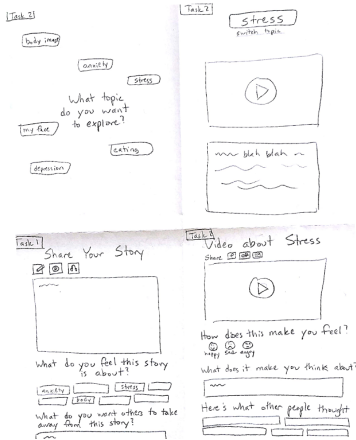 Task 2
body image
anxiety
stress
What topic
do you want
to explore?
my face
eating
depression
Task 2
stress
switch topic
blah blah
Task 1
Share Your Story
What do you feel this story
is about?
anxiety
stress
body
What do you want others to take
away from this story?
Task 1
Video about Stress
Share
How does this make you feel?
happy sad angry
What does it make you think about?
Here's what other people thought